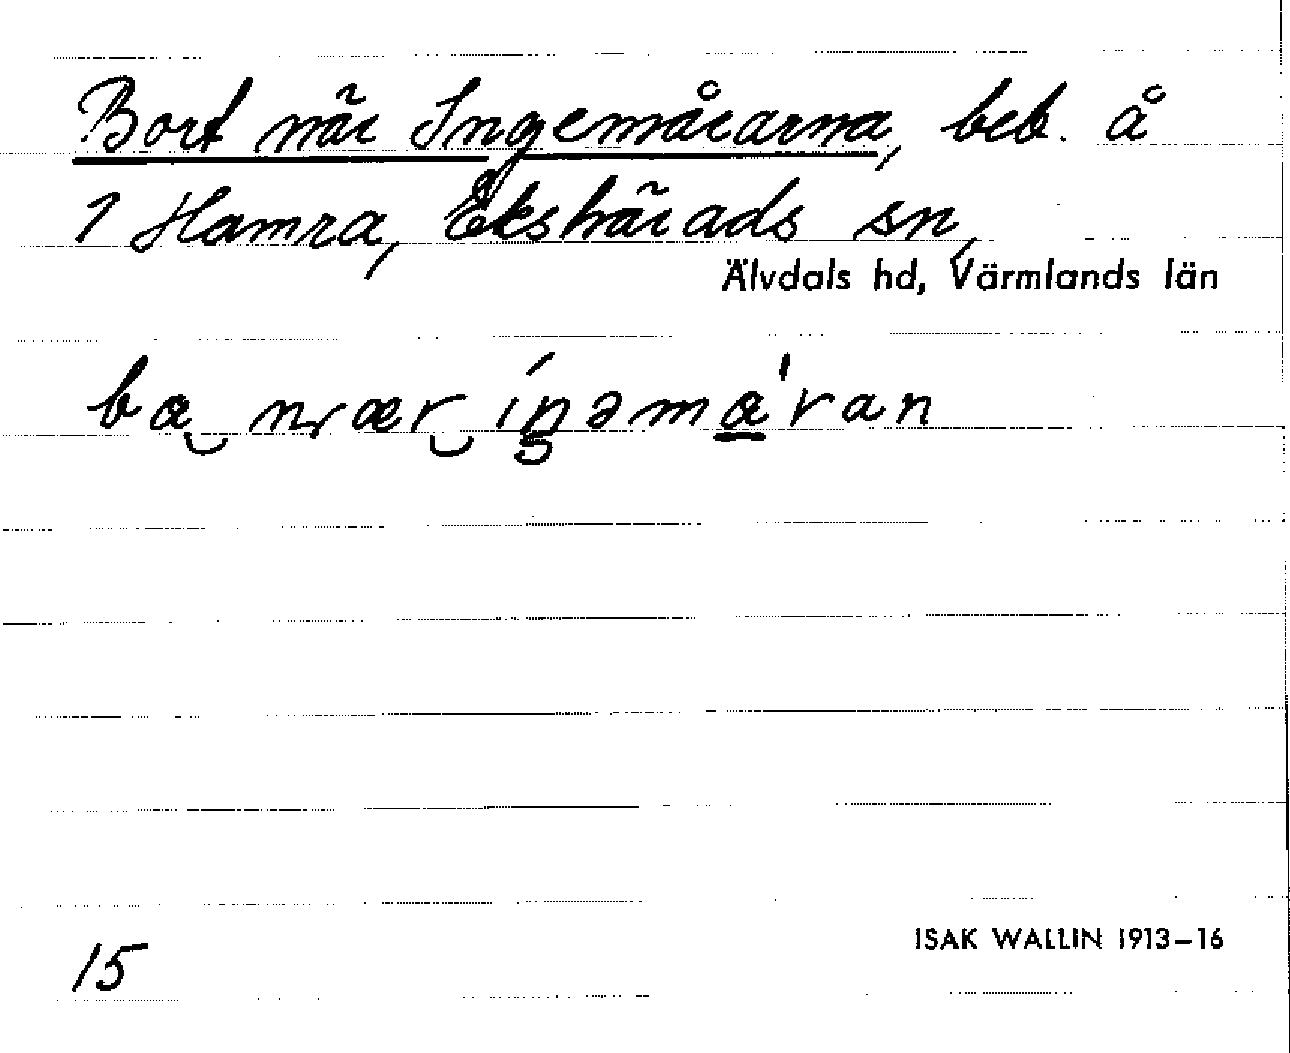 Bort när Ingemårarna, beb. å
1 Hamra, Ekshärads sn,
Älvdals hd, Värmlands län
15
ISAK WALLIN 1913–16